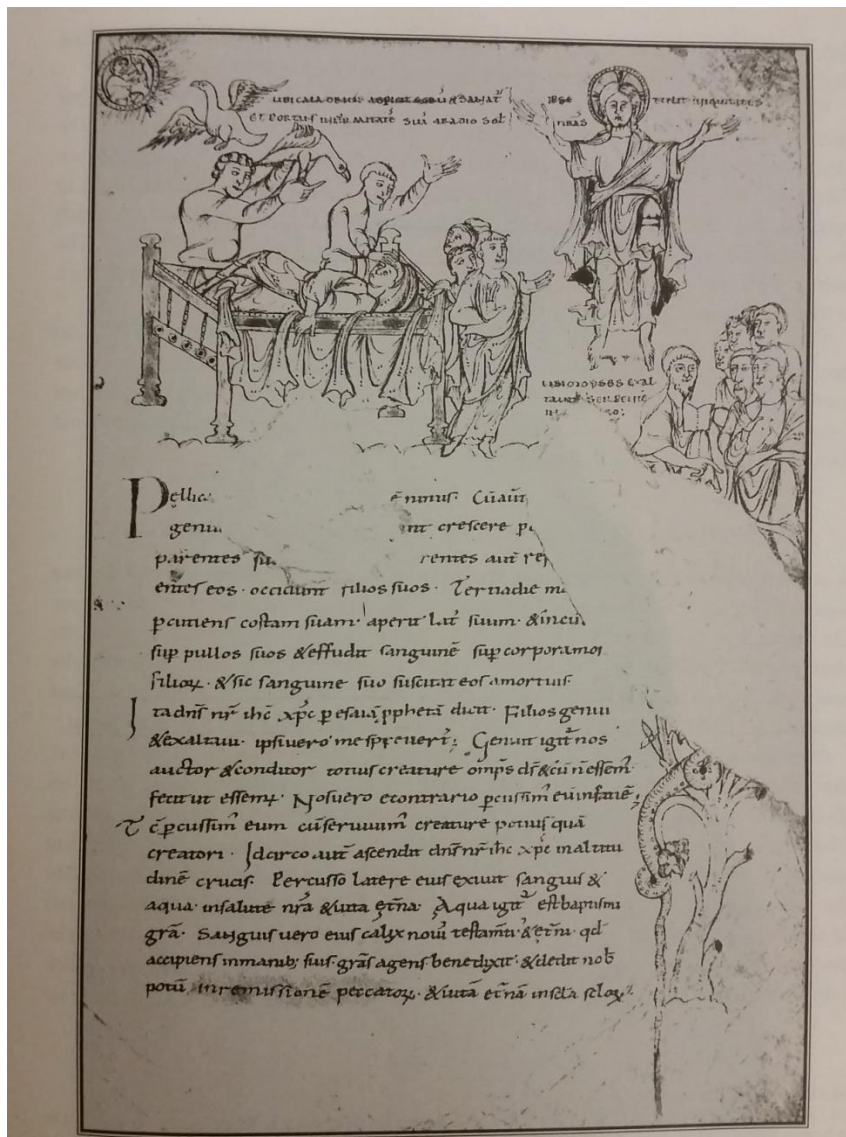 UBI CALADRIUS
ET PORTAT INFIRMITATĒ SUĀ ARADIO SOL
UBI MOYSES EXAL
TAVIT SERPENTĒ
Pellic ē nimis. Cū aut̄
genu nt crescere
parentes su rentes aut̄ re
entes eos · occidunt filios suos · Tertia die
pcutiens costam suam · aperit lat̄ suum · & incu
sup pullos suos & effudit sanguinē sup corpora mor
filioꝝ · & sic sanguine suo suscitat eos a mortuis
Ita dn̄s nr̄ ihc xp̄c p esaiā pphetā dicit · Filios genui
& exaltavi · ipsi vero me sprever̄t; Genuit igit̄ nos
auctor & conditor totius creature om̄ps ds̄ & cū n̄ essem
fecit ut essem · Nos vero econtrario pcussim̄ eū in faciē;
Tc̄ pcussim̄ eum cū servivim̄ creature potius quā
creatori · Idcirco aut̄ ascendit dn̄s nr̄ ihc xp̄c in altitu
dinē crucis. Percusso latere eius exivit sanguis &
aqua · in salute nr̄a & vita et̄na · Aqua igit̄ est baptismi
grā · Sanguis vero eius calix novi testam̄ti & et̄ni · qd
accipiens in manib; suis · gr̄as agens benedixit · & dedit nob̄
potū in remissionē peccatoꝝ · & vitā et̄nā in scl̄a scl̄oꝝ